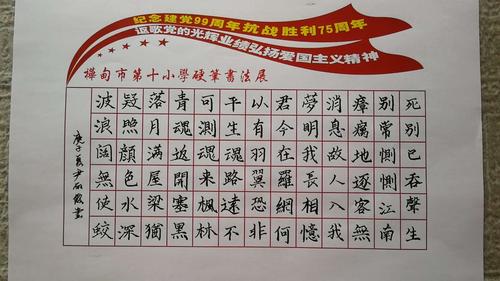 纪念建党99周年抗战胜利75周年
讴歌党的光辉业绩弘扬爱国主义精神
樺甸市第十小學硬筆書法展
死别已吞聲生
别常惻惻江南
瘴癘地逐客無
消息故人入我
夢明我長相憶
君今在羅網何
以有羽翼恐非
平生魂路遠不
可測魂来楓林
青魂返開塞黑
落月滿屋梁猶
疑照顔色水深
波浪闊無使蛟
庚子夏尹書